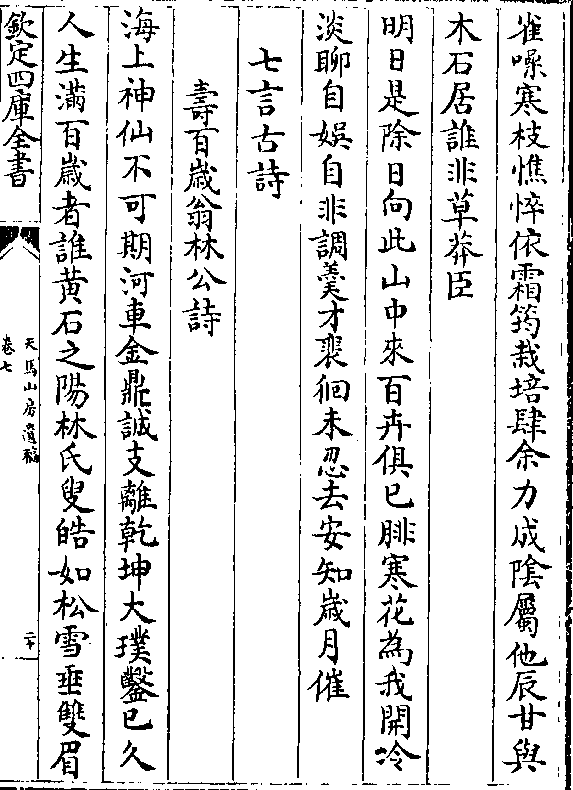 雀噪寒枝憔悴依霜筠栽培肆余力成陰屬他辰甘與
木石居誰非草莽臣
明日是除日向此山中來百卉俱已腓寒花為我開冷
淡聊自娛自非調羹才裴徊未忍去安知歲月催
七言古詩
壽百歲翁林公詩
海上神仙不可期河車金鼎誠支離乾坤大璞鑿已久
人生滿百歲者誰黃石之陽林氏叟皓如松雪垂雙眉
欽定四庫全書
天馬山房遺稿
卷七
二十